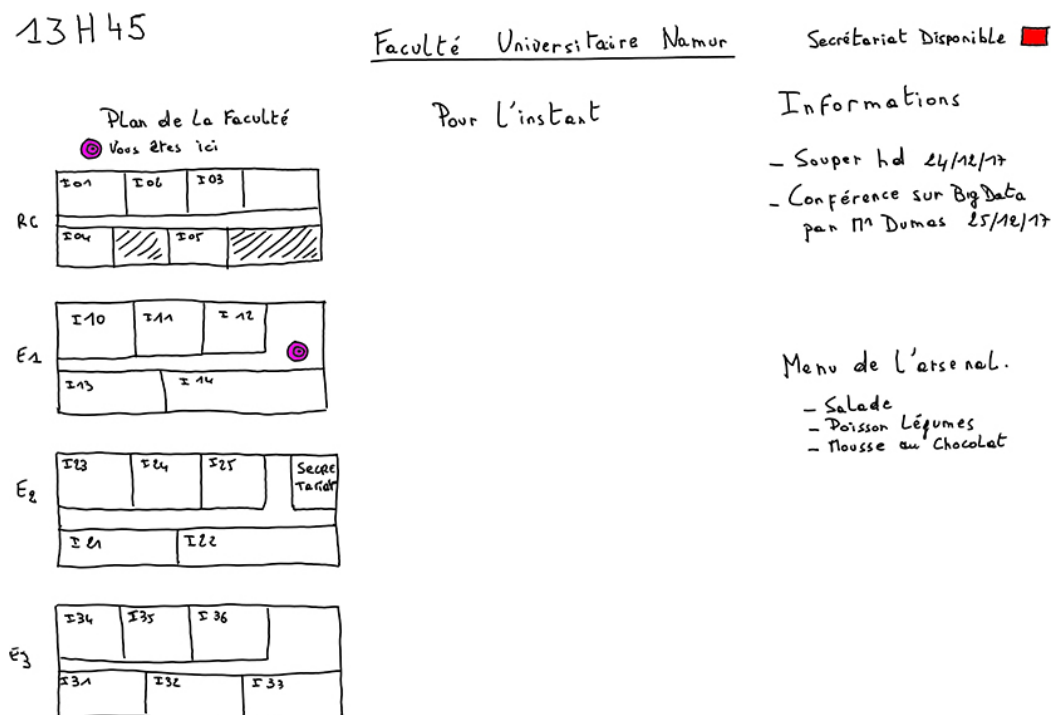 13H45
Faculté Universitaire Namur
Secrétariat Disponible
Plan de La Faculté
Vous êtes ici
RC
I01 I06 I03
I04 I05
E1
I10 I11 I12
I13 I14
E2
I23 I24 I25 Secre
tariat
I21 I22
E3
I34 I35 I36
I31 I32 I33
Pour l'instant
Informations
- Souper hd 24/12/17
- Conférence sur Big Data
par Mr Dumas 25/12/17
Menu de l'arsenal.
- Salade
- Poisson Légumes
- Mousse au Chocolat